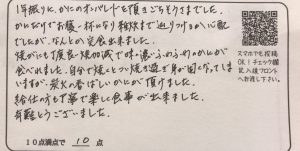 1年振りにかにのオンパレードを頂きごちそうさまでした。
かになりでお腹一杯になり雑炊まで辿りつけるか心配
でしたが、なんとか完食出来ました。
焼がにも丁度良い焼加減で味も濃くふわふわのかにが
食べれました。自分で焼くとつい焼き過ぎ身が固くなってしま
いますが、炭火の香ばしいかにが頂けました。
給仕の方も丁寧で楽しく食事が出来ました。
有難とうございました。
10点満点で 10 点
スマホでも投稿
OK!チェック欄
記入後フロント
へお渡し下さい。